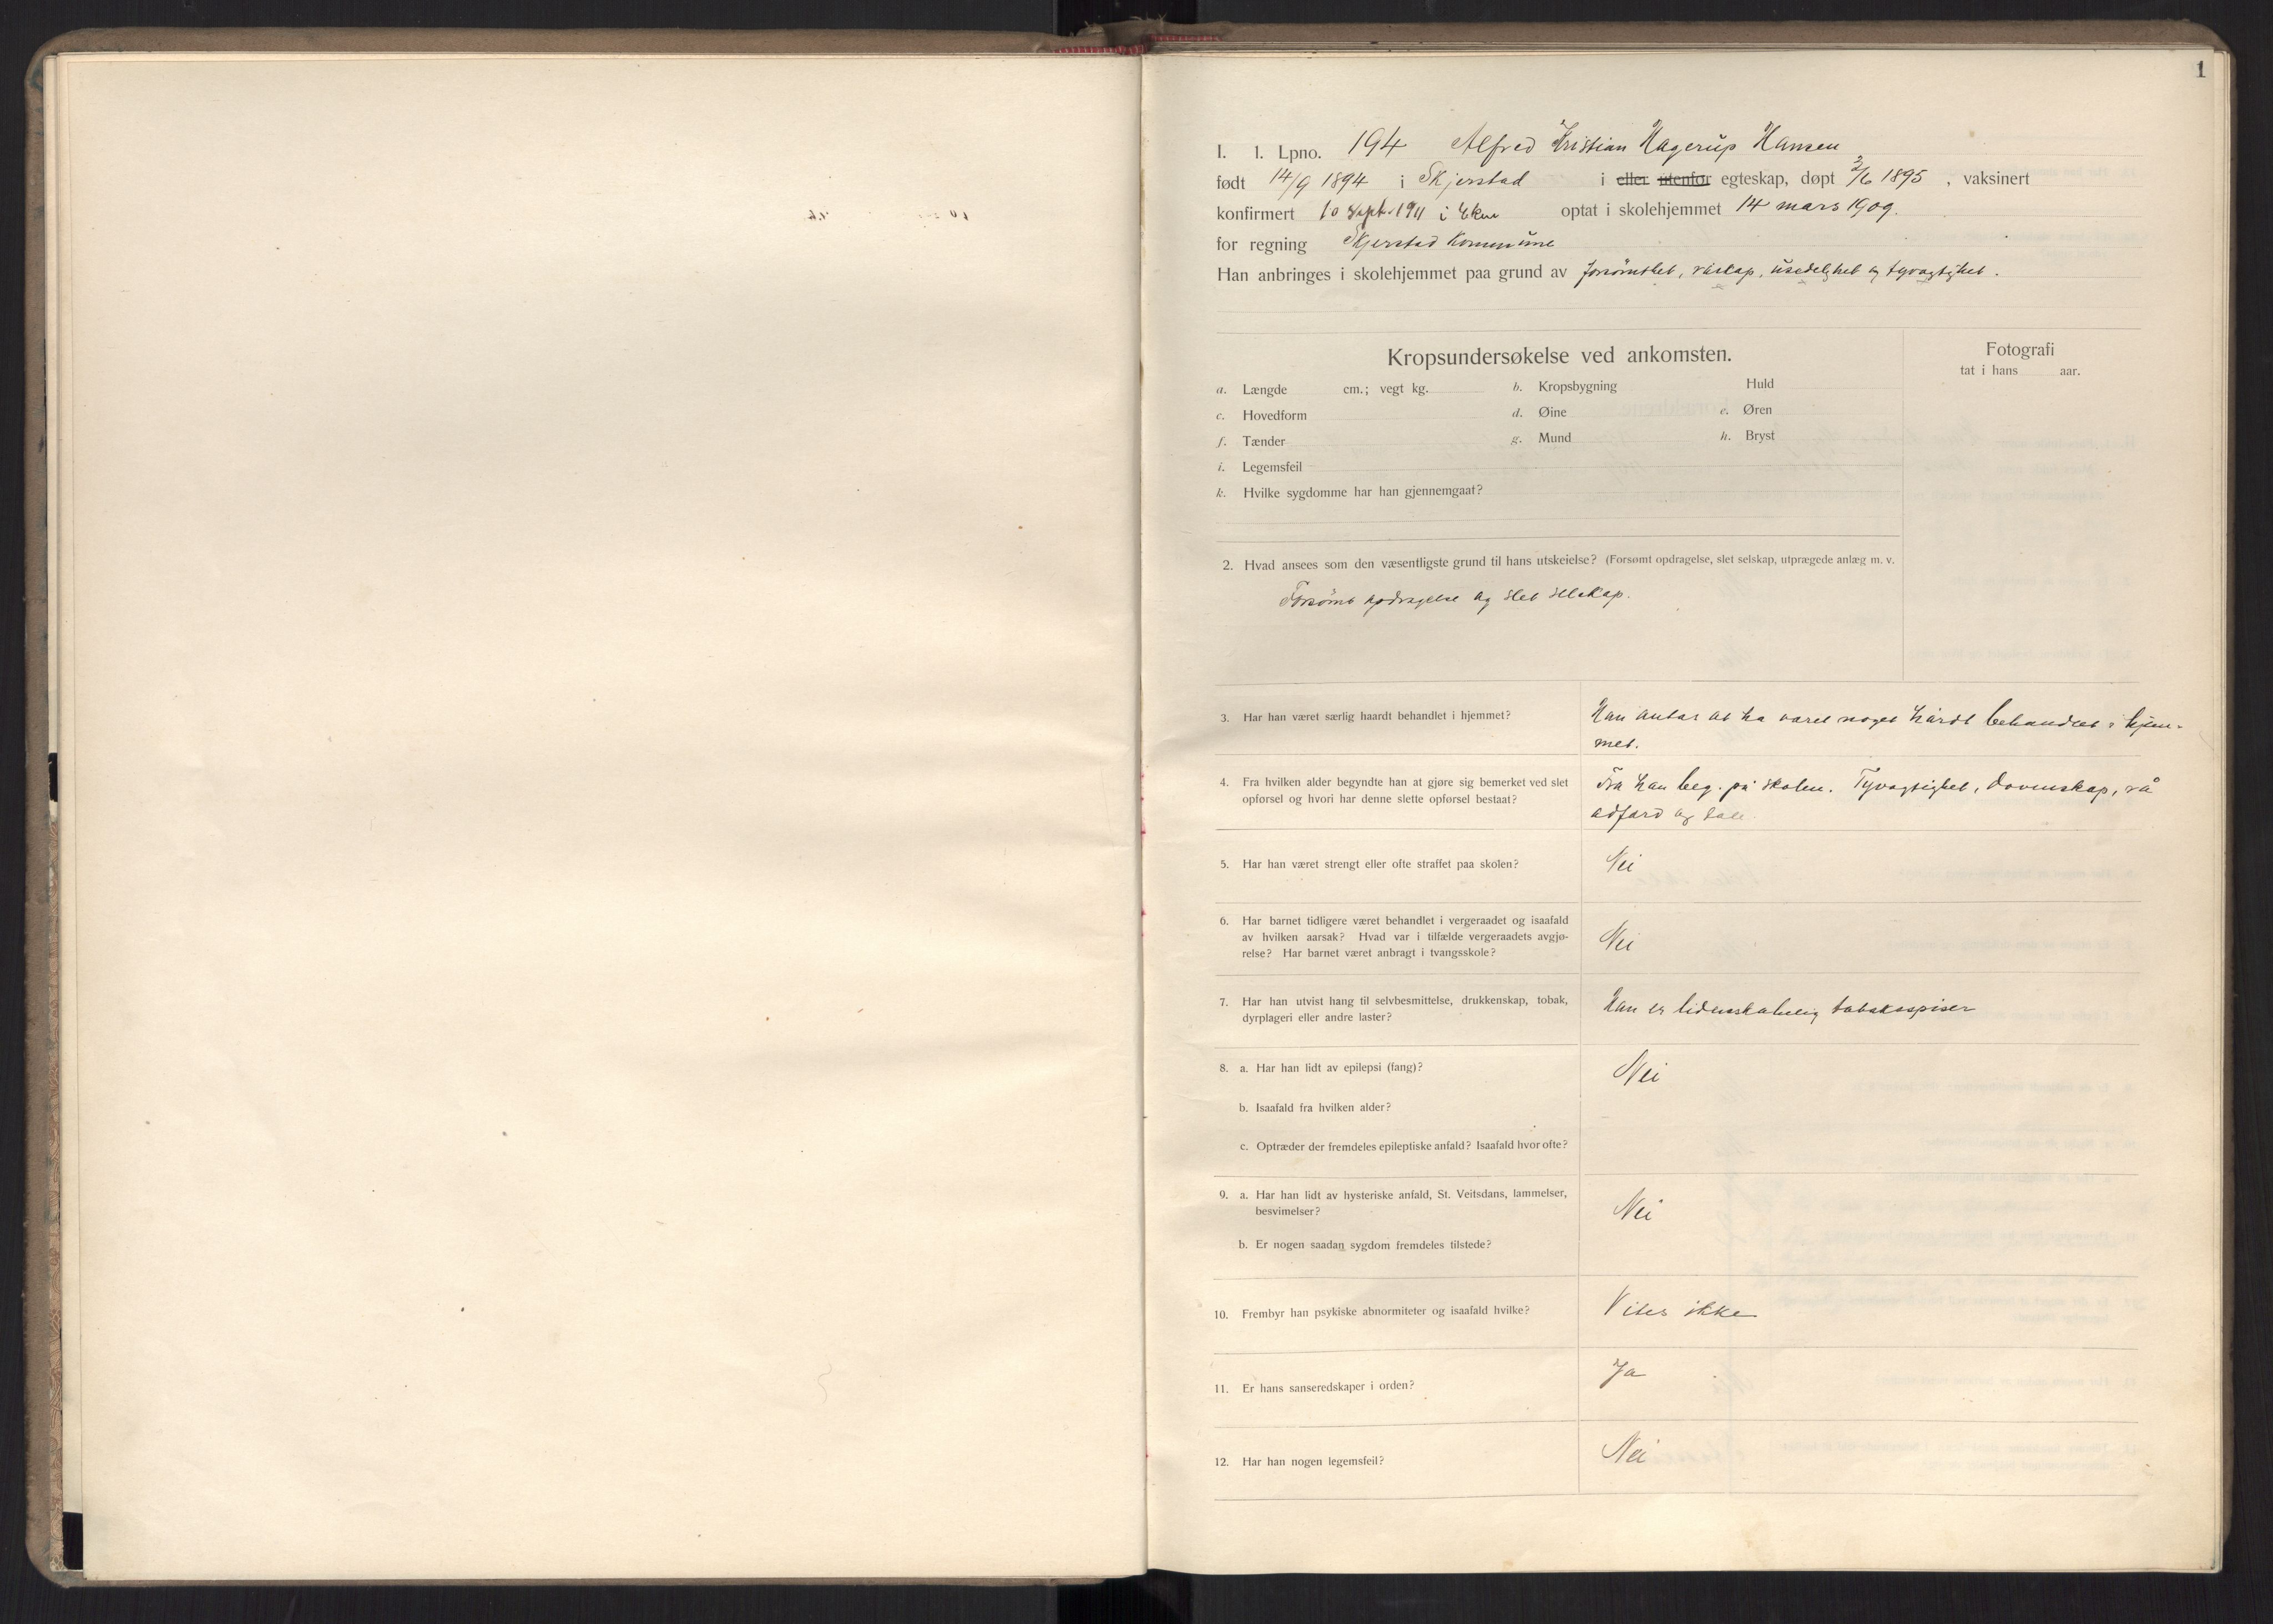 1
I. 1. Lpno. 194 Alfred Kristian Hagerup Hansen
født 14/9 1894 i Skjerstad i eller utenfor egteskap, døpt 2/6 1895, vaksinert
konfirmert 10 Sept. 1911 i Ekne optat i skolehjemmet 14 mars 1909.
for regning Skjerstad kommune
Han anbringes i skolehjemmet paa grund av forsømthet, råskap, usedelighet og tyvagtighet.
Kropsundersøkelse ved ankomsten.
Fotografi
tat i hans aar.
a. Længde cm.; vegt kg. b. Kropsbygning Huld
c. Hovedform d. Øine e. Øren
f. Tænder g. Mund h. Bryst
i. Legemsfeil
k. Hvilke sygdomme har han gjennemgaat?
2. Hvad ansees som den væsentligste grund til hans utskeielse? (Forsømt opdragelse, slet selskap, utprægede anlæg m. v.
Forsømt opdragelse og slet selskap.
3. Har han været særlig haardt behandlet i hjemmet?
Han antas at ha været noget hårdt behandlet i hjem-
met.
4. Fra hvilken alder begyndte han at gjøre sig bemerket ved slet
opførsel og hvori har denne slette opførsel bestaat?
Fra han beg. på skolen. Tyvagtighet, dovenskap, rå
adfærd og tale
5. Har han været strengt eller ofte straffet paa skolen?
Nei
6. Har barnet tidligere været behandlet i vergeraadet og isaafald
av hvilken aarsak? Hvad var i tilfælde vergeraadets avgjø-
relse? Har barnet været anbragt i tvangsskole?
Nei
7. Har han utvist hang til selvbesmittelse, drukkenskap, tobak,
dyrplageri eller andre laster?
Han er lidenskabelig tobakspiser
8. a. Har han lidt av epilepsi (fang)?
Nei
b. Isaafald fra hvilken alder?
c. Optræder der fremdeles epileptiske anfald? Isaafald hvor ofte?
9. a. Har han lidt av hysteriske anfald, St. Veitsdans, lammelser,
besvimelser?
Nei
b. Er nogen saadan sygdom fremdeles tilstede?
10. Frembyr han psykiske abnormiteter og isaafald hvilke?
Vites ikke
11. Er hans sanseredskaper i orden?
Ja
12. Har han nogen legemsfeil?
Nei